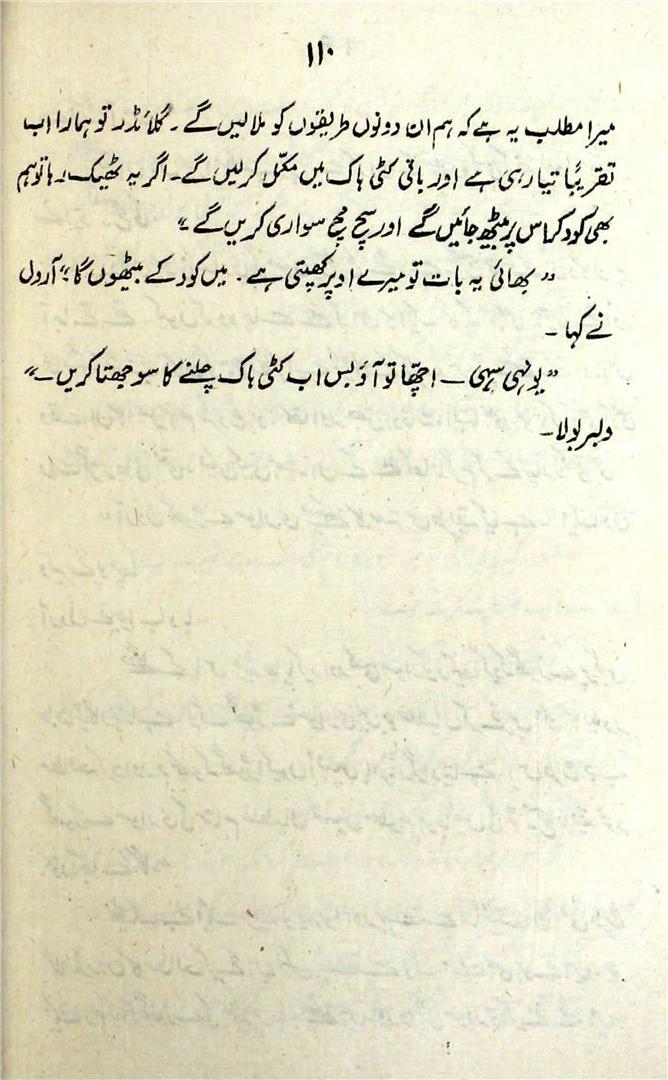 ۱۱۰
میرا مطلب یہ ہے کہ ہم ان دونوں طریقوں کو ملا لیں گے۔ گلائڈر تو ہمارا اب
تقریباً تیار ہی ہے اور باقی کٹی ہاک میں مکمّل کر لیں گے۔ اگر یہ ٹھیک رہا تو ہم
بھی کود کر اس پر بیٹھ جائیں گے اور سچ مچ سواری کریں گے۔“
”بھائی یہ بات تو میرے اوپر کھپتی ہے۔ میں کود کے بیٹھوں گا؛“ آرول
نے کہا۔
”یونہی سہی ــ اچھّا تو آؤ بس اب کٹی ہاک چلنے کا سوجھتا کریں۔“
ولبر بولا۔